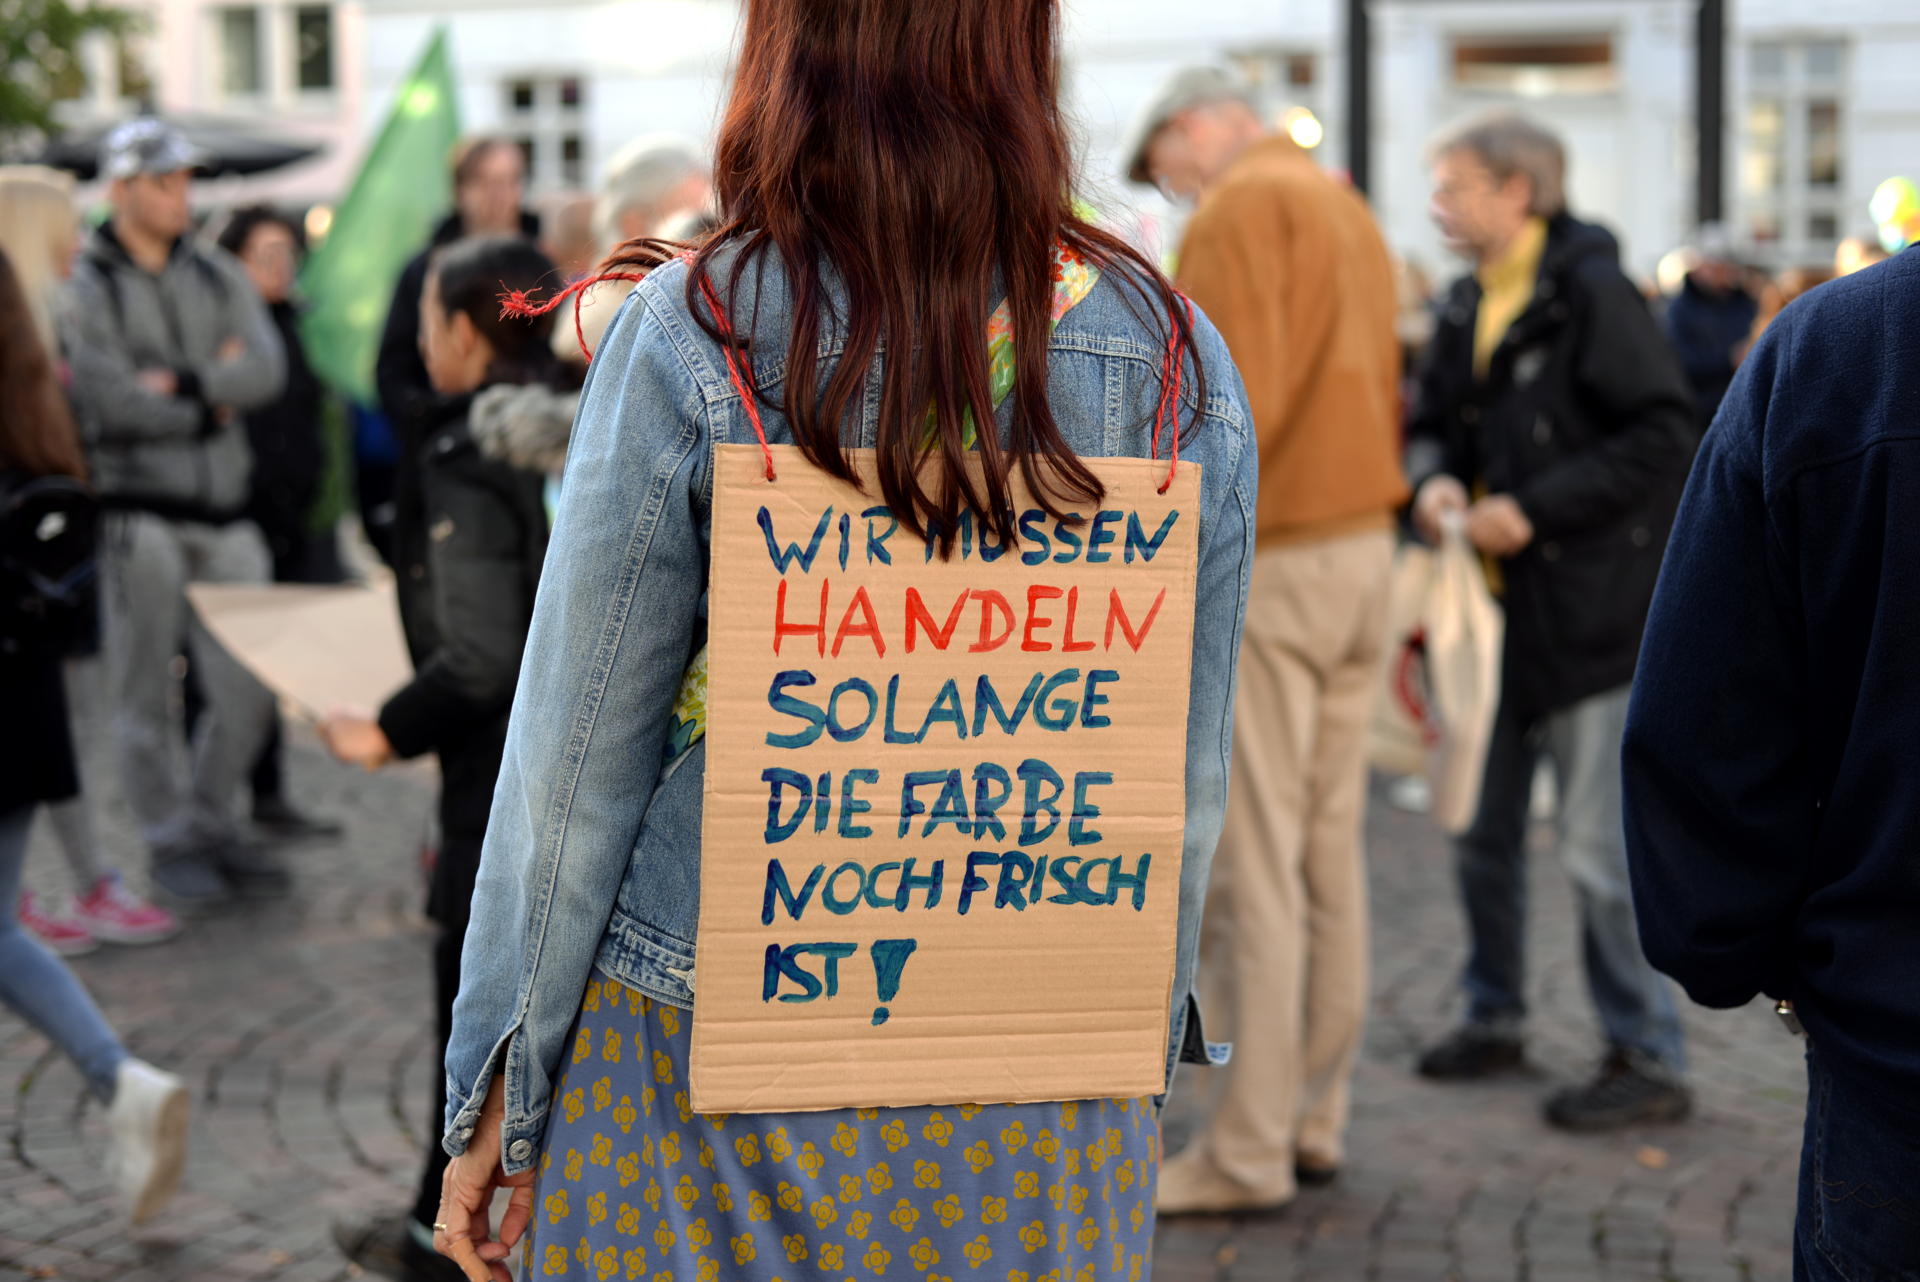 WIR MÜSSEN
HANDELN
SOLANGE
DIE FARBE
NOCH FRISCH
IST!